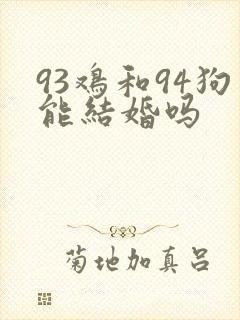 93鸡和94狗
能结婚吗
菊地加真吕